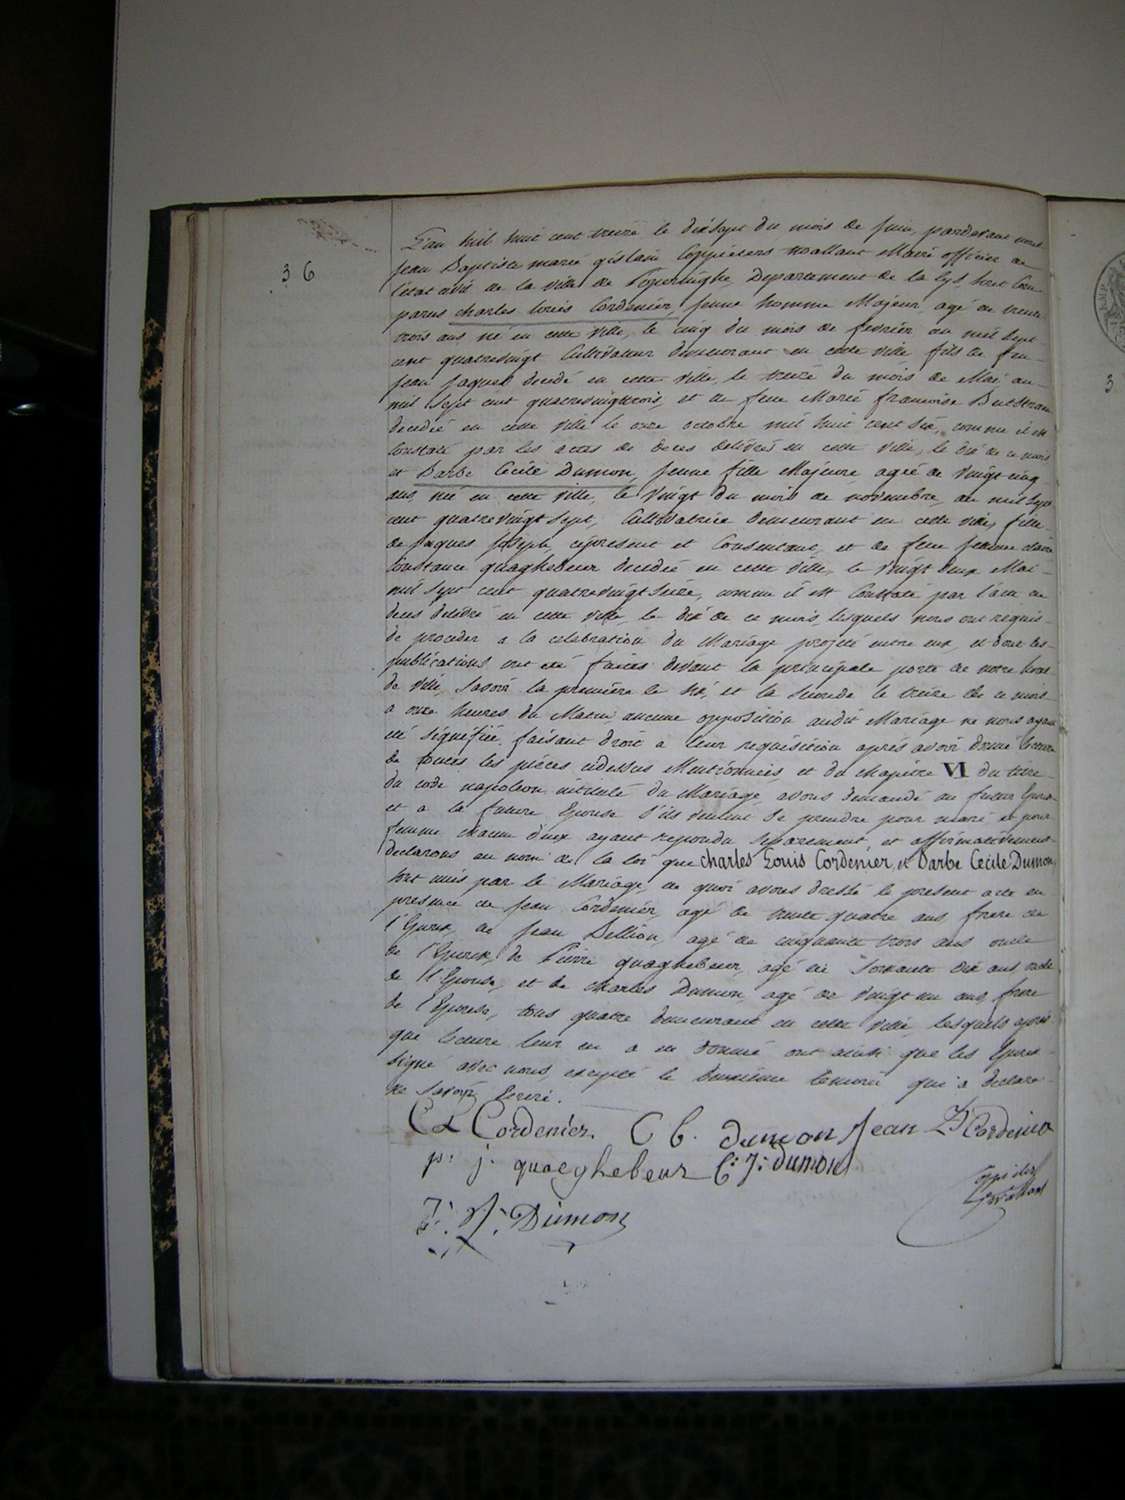 36
L'an mil huit cent treize le dixsept du mois de juin, pardevant nous
Jean Baptiste marie gislain Coppieters Wallant Maire officier de
l'état civil de la ville de Poperinghe, Departement de la Lys, sont Com-
parus charles Louis Cordenier, jeune homme Majeur, agé de trente
trois ans né en cette ville, le cinq du mois de fevrier an mil sept
cent quatrevingt Cultivateur demeurant en cette ville fils de feu
Jean Jaques decedé en cette ville, le treize du mois de Mai an
mil sept cent quatrevingttrois, et de feue Marie francoise
decedée en cette ville le onze octobre mil huit cent six, comme il est
Constaté par les actes de deces delivrés en cette ville, le dix de ce mois
et Barbe Cecile Dumon, jeune fille Majeure, agée de vingt cinq
ans, née en cette ville, le vingt du mois de novembre, an mil sept
cent quatrevingt sept, Cultivatrice demeurant en cette ville, fille
de Jaques Joseph, cipresent et Consentant, et de feue jeanne claire
Constance quaghebeur decedée en cette ville, le vingt deux Mai
mil sept cent quatrevingt seize, comme il est Constaté par l'acte de
deces delivré en cette ville, le dix de ce mois, lesquels nous ont requis
de proceder a la celebration du Mariage projeté entre eux, et dont les
publications ont été faites devant la principale porte de notre hotel
de ville, Savoir la première le six et la seconde le treize de ce mois
a onze heures du Matin, aucune opposition audit Mariage ne nous ayant
été signifiée, faisant droit a leur requisition après avoir donné lecture
de toutes les pièces cidessus Mentionnées et du chapitre VI du titre
du code napoleon intitulé du Mariage, avons demandé au futur Epoux
et a la future Epouse s'ils veulent se prendre pour mari et pour
femme chacun d'eux ayant repondu separement et affirmativement
declarons au nom de la loi que charles Louis Cordenier, et Barbe Cecile Dumon,
sont unis par le Mariage, de quoi avons dressé le present acte en
presence de Jean Cordenier, agé de trente quatre ans frere de
l'Epoux, de Jean Dellion, agé de cinquante trois ans oncle
de l'Epoux, de Pierre quaghebeur, agé de soixante dix ans oncle
de l'Epouse, et de charles Dumon, agé de vingt un ans, frere
de l'Epouse, tous quatre demeurant en cette ville, lesquels après
que lecture leur en a été donnée ont ainsi que les Epoux
signé avec nous, excepté le deuxième temoin qui a declaré
ne savoir ecrire.
C L Cordenier. C b. dumon Jean Bt Cordenier
p. j. quaeghebeur C: J: dumon
J: J: Dumon